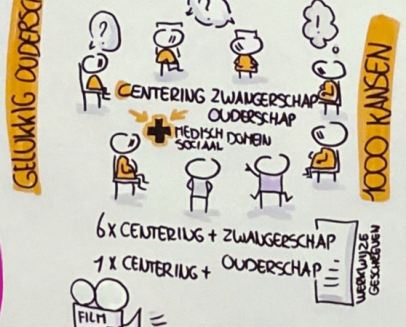 GELUKKIG OUDERSCH
?
!
CENTERING ZWANGERSCHAP
OUDERSCHAP
+ MEDISCH DOMEIN
SOCIAAL
1000 KANSEN
6x CENTERING + ZWANGERSCHAP
1x CENTERING + OUDERSCHAP
WERKWIJZE
GESCHREVEN
FILM